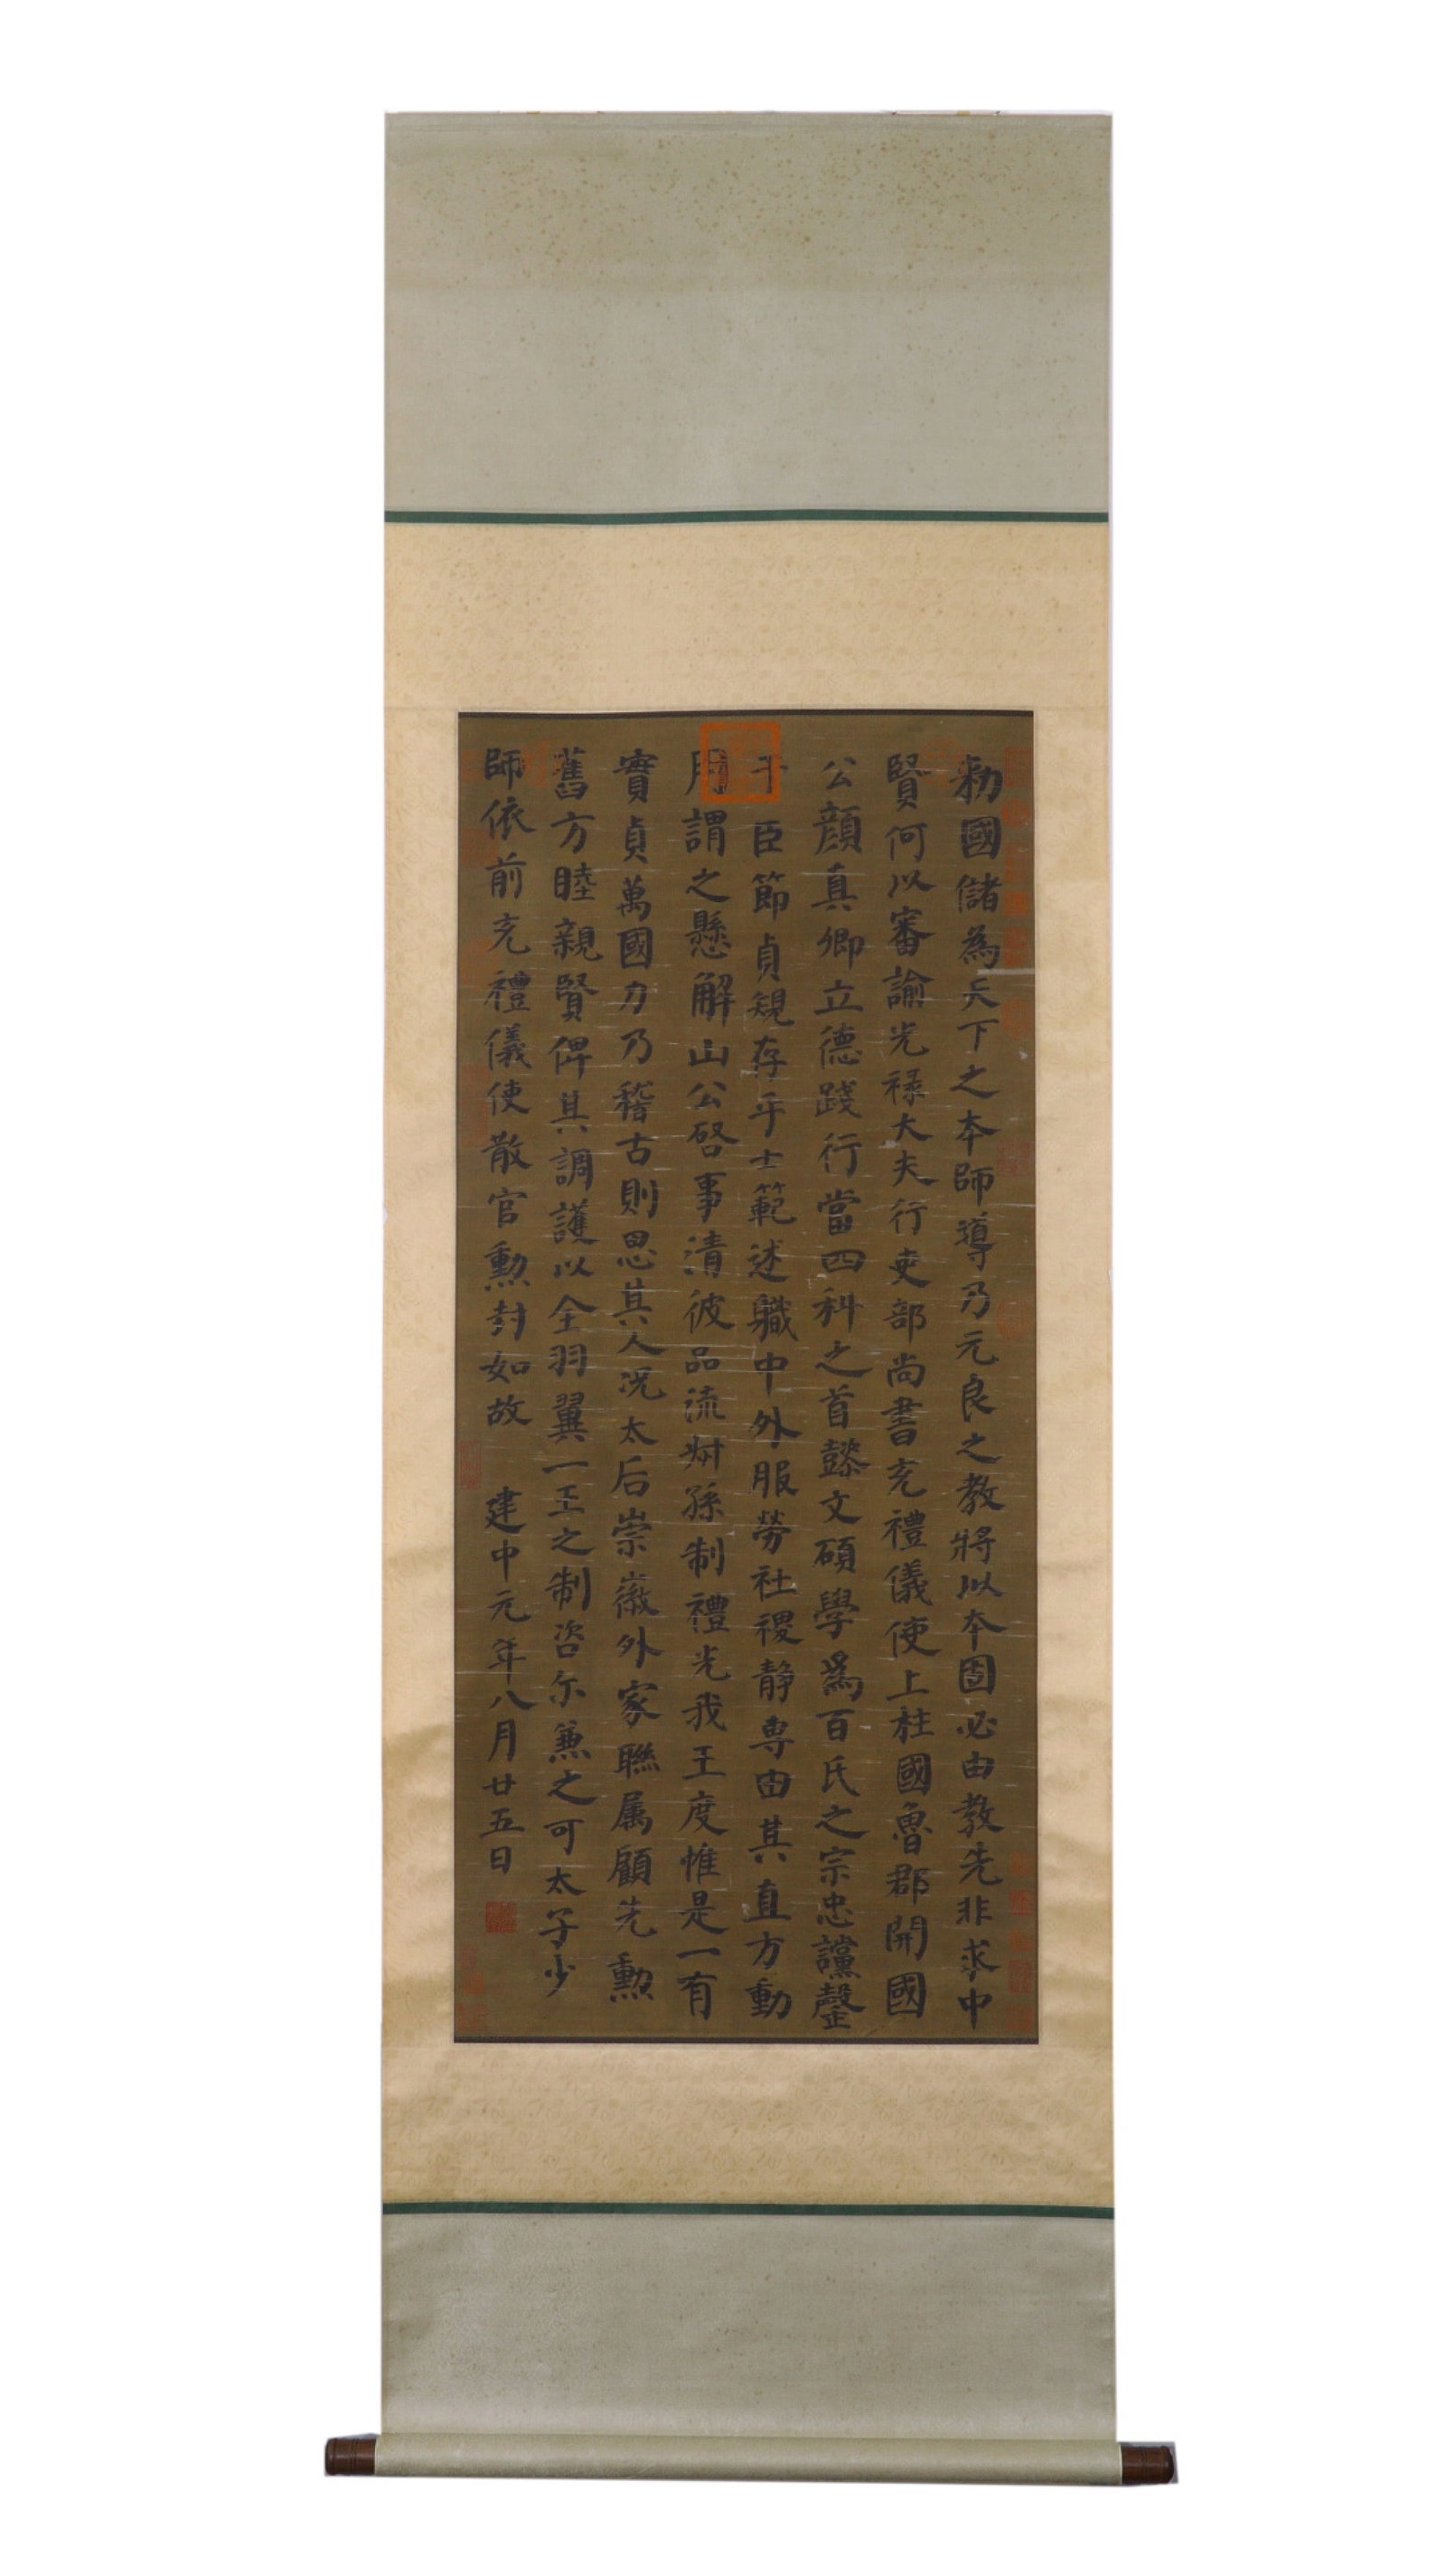 勑國儲為天下之本師導乃元良之教將以本固必由教先非求中
賢何以審諭光祿大夫行吏部尚書充禮儀使上柱國魯郡開國
公顏真卿立德踐行當四科之首懿文碩學為百氏之宗忠讜罄
于臣節貞規存乎士範述職中外服勞社稷靜專由其直方動
用謂之懸解山公啓事清彼品流叔孫制禮光我王度惟是一有
實貞萬國力乃稽古則思其人況太后崇徽外家聯屬顧先勲
舊方睦親賢俾其調護以全羽翼一王之制咨尔兼之可太子少
師依前充禮儀使散官勳封如故 建中元年八月廿五日